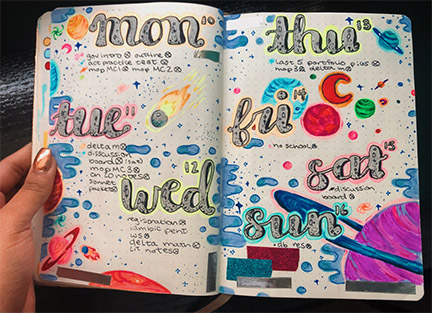 mon 10
gov intro ⊗ outline ⊗
act practice test ⊗
map MC1 ⊗ map MC2 ⊗
tue 11
delta m ⊗
discussion
board ⊗ (sat)
map MC3 ⊗
sonnet
packet ⊗
wed 12
registration ⊗
iambic pent
ws ⊗
delta math ⊗
lit notes ⊗
thu 13
last 5 portfolio pics ⊗
map 3 ⊗ delta m ⊗
fri 14
no school ⊗
sat 15
discussion
board ⊗
sun 16
db res ⊗